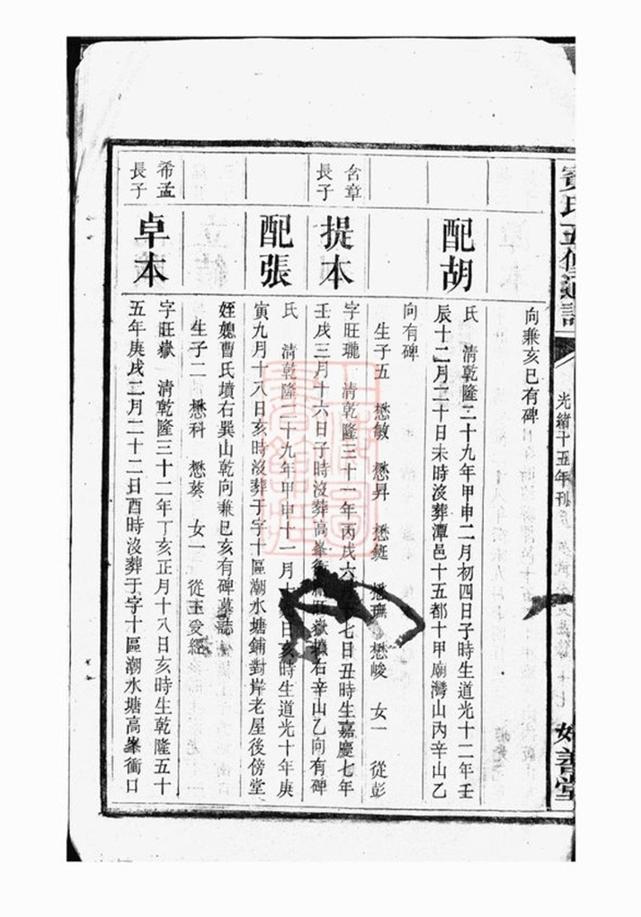 氏五修通譜
光緒十五年刊
善堂
向兼亥巳有碑
配胡
氏 清乾隆二十九年甲申二月初四日子時生道光十二年壬
辰十二月二十日未時沒葬潭邑十五都十甲廟灣山內辛山乙
向有碑
生子五 懋敏 懋昇 懋 懋 懋峻 女一 從彭
含章
長子
提本
字旺瓏 清乾隆三十一年丙戌六 七日丑時生嘉慶七年
壬戌三月十六日子時沒葬高峯衝 旺嶽 右辛山乙向有碑
配張
氏 清乾隆二十九年甲申十一月十 日亥時生道光十年庚
寅九月十八日亥時沒葬于字十區潮水塘鋪對岸老屋後傍堂
姪媳曹氏墳右巽山乾向兼巳亥有碑墓誌
生子二 懋科 懋葵 女一 從王受經
希孟
長子
卓本
字旺嶽 清乾隆三十二年丁亥正月十八日亥時生乾隆五十
五年庚戌二月二十二日酉時沒葬于字十區潮水塘高峯衝口